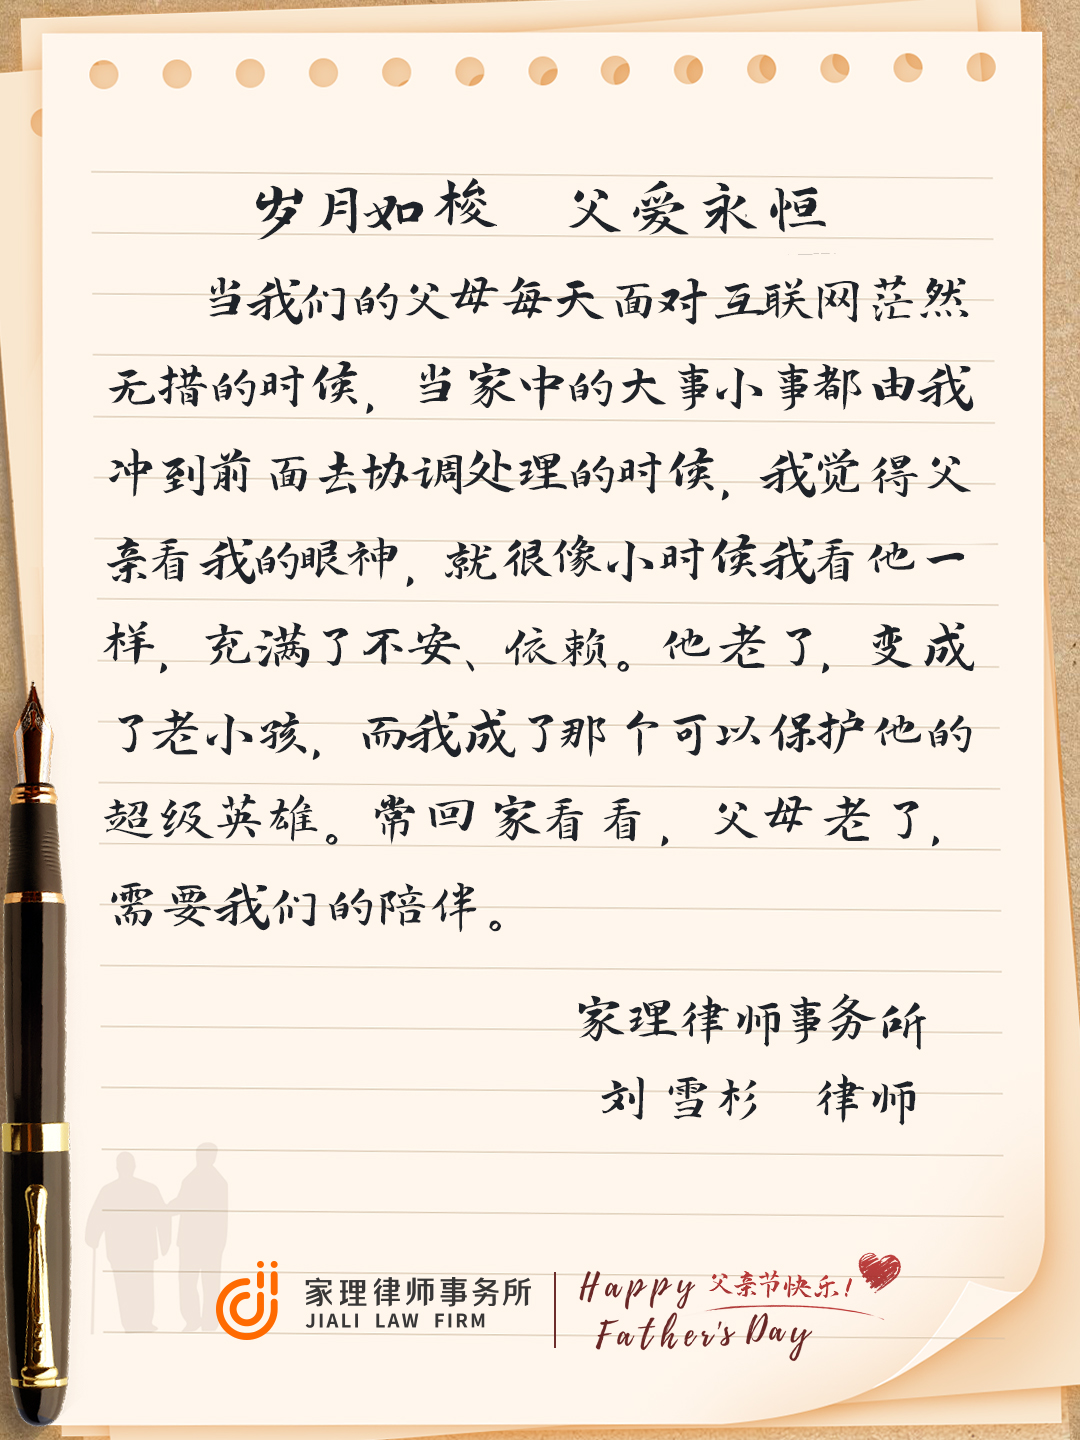 岁月如梭 父爱永恒
当我们的父母每天面对互联网茫然
无措的时候，当家中的大事小事都由我
冲到前面去协调处理的时候，我觉得父
亲看我的眼神，就很像小时候我看他一
样，充满了不安、依赖。他老了，变成
了老小孩，而我成了那个可以保护他的
超级英雄。常回家看看，父母老了，
需要我们的陪伴。
家理律师事务所
刘雪杉 律师
家理律师事务所
JIALI LAW FIRM
Happy 父亲节快乐！
Father's Day